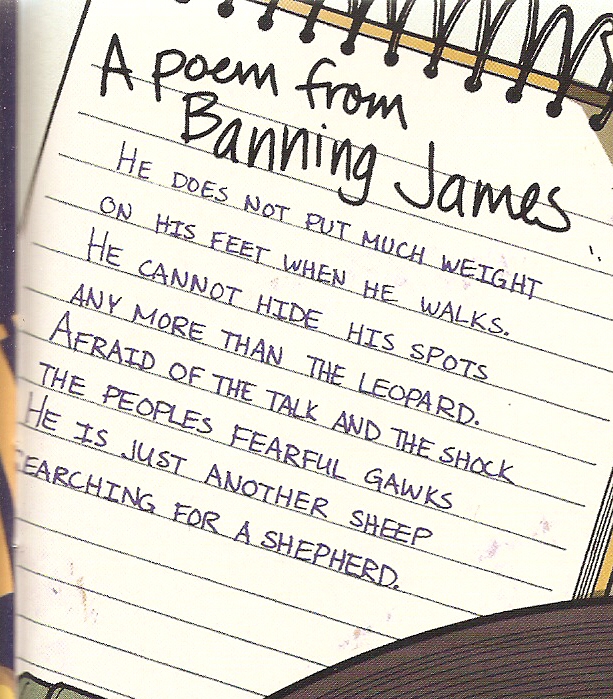 A poem from
Banning James
HE DOES NOT PUT MUCH WEIGHT
ON HIS FEET WHEN HE WALKS.
HE CANNOT HIDE HIS SPOTS
ANY MORE THAN THE LEOPARD.
AFRAID OF THE TALK AND THE SHOCK
THE PEOPLES FEARFUL GAWKS
HE IS JUST ANOTHER SHEEP
SEARCHING FOR A SHEPHERD.